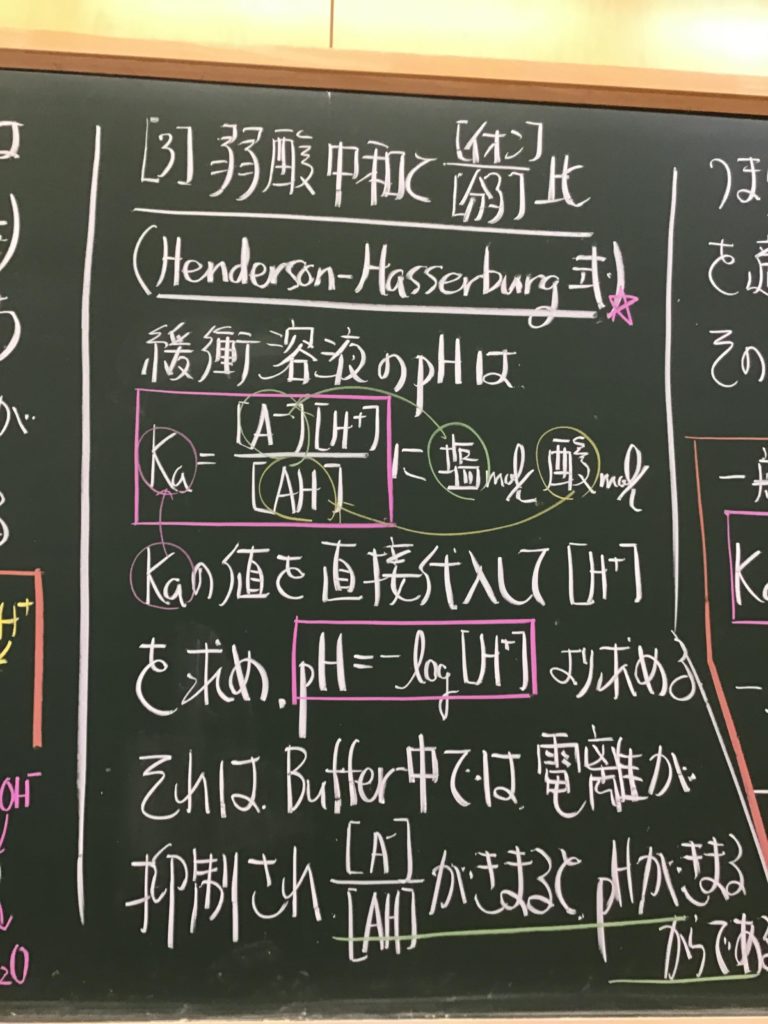 [3] 弱酸中和と [イオン]/[分子] 比
(Henderson-Hasserburg 式)☆
緩衝溶液のpHは
Ka = [A⁻][H⁺]/[AH] に 塩mol/ℓ 酸mol/ℓ
Kaの値を直接代入して [H⁺]
を求め. pH=-log[H⁺] より求める
それは Buffer中では 電離が
抑制され [A⁻]/[AH] がきまると pHがきまる
からである
は
が
る
H⁺
OH⁻
₂O
つま
を
その
一般
K